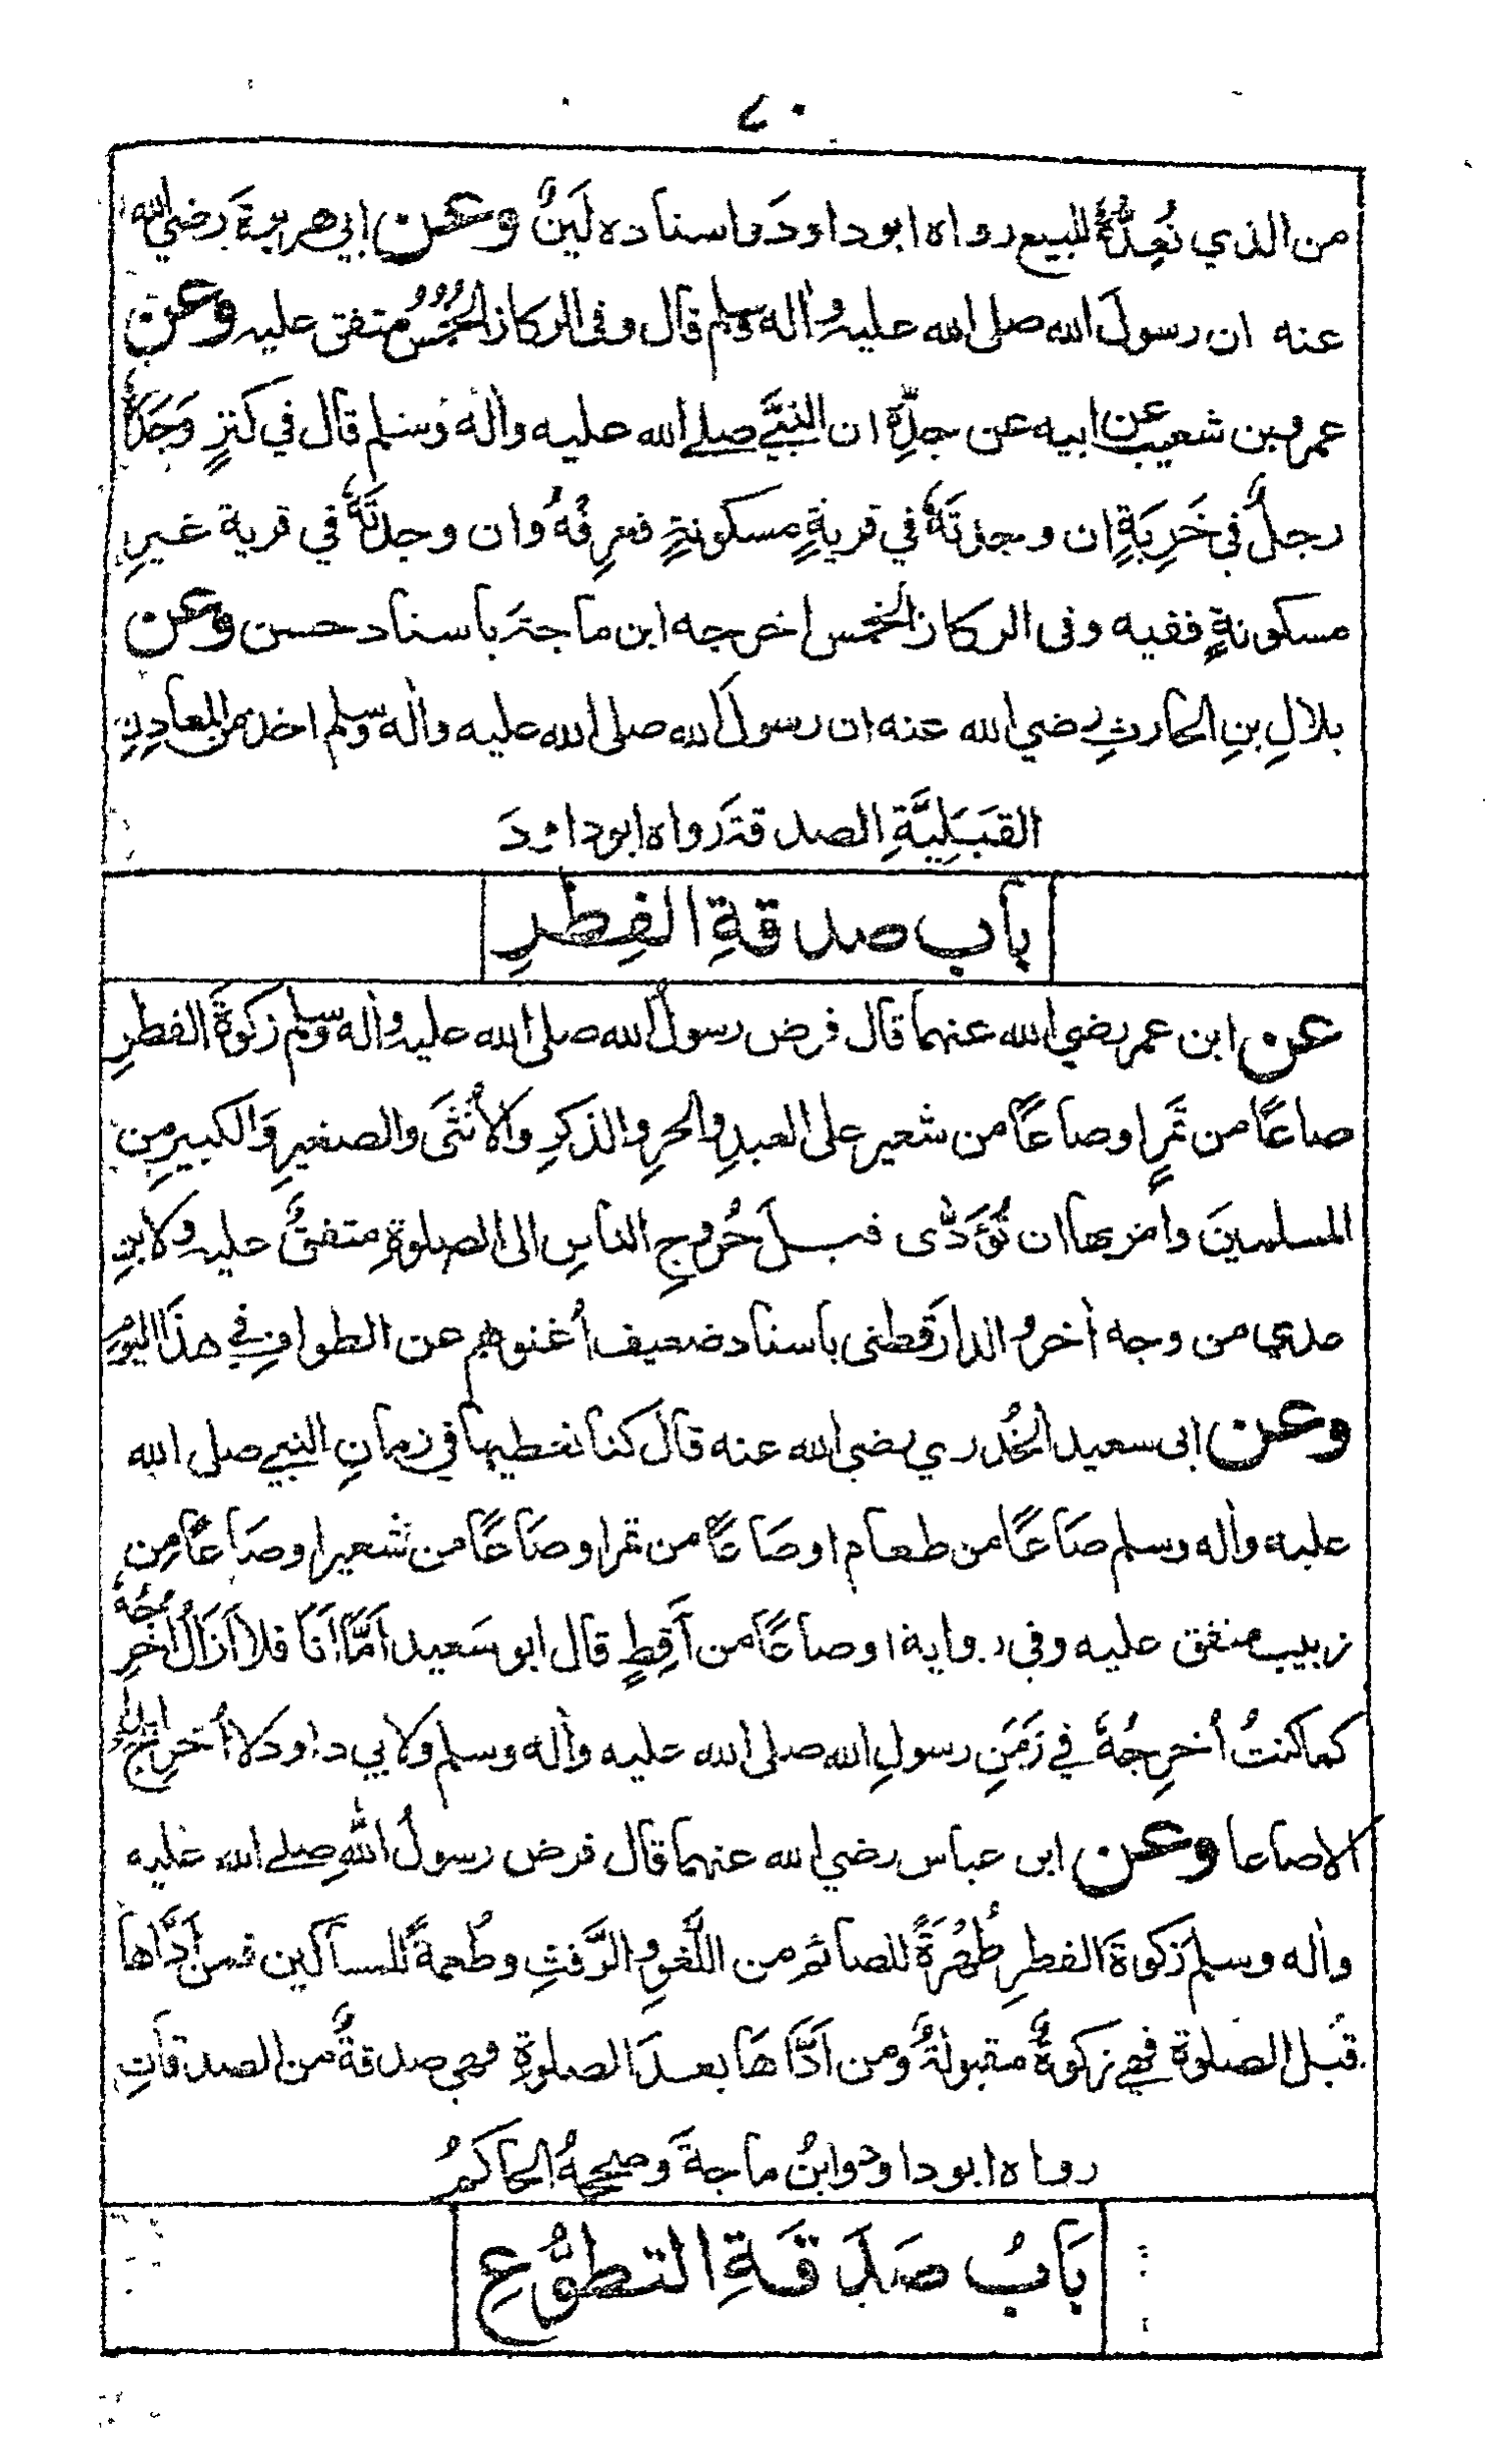 ٤٠
من الذي نُعِدُّهُ للبيع رواه ابو داودَ واسناده لَيِّنٌ وعن ابي هريرةَ رضي الله
عنه ان رسولَ الله صلى الله عليه واٰله وسلم قال وفى الركاز الخُمُسُ متفق عليه وعن
عمرو بن شعيب عن ابيه عن جدِّهٖ ان النبيَّ صلے الله عليه واٰله وسلم قال في كنزٍ وَجَدَهُ
رجلٌ في خَرِبَةٍ ان وجدتَهُ في قريةٍ مسكونةٍ فعرِفْهُ وان وجدتَهُ في قرية غيرِ
مسكونةٍ ففيه وفى الركاز الخمس اخرجه ابن ماجة باسناد حسن وعن
بلالِ بنِ الحارثِ رضي الله عنه ان رسولَ الله صلى الله عليه واٰله وسلم اخذ من المعادِنِ
القَبَلِيَّةِ الصدقةَ رواه ابو داودَ
باب صدقةِ الفِطْرِ
عن ابن عمر رضي الله عنهما قال فرض رسولُ الله صلى الله عليه واٰله وسلم زكوةَ الفطرِ
صاعًا من تمرٍ اوصاعًا من شعير على العبدِ والحرِ والذكرِ والأُنثَى والصغيرِ وَالكبيرِ مِن
المسلمينَ وامَر بها ان تُؤَدّٰى قبلَ خُروجِ الناسِ الى الصلوةِ متفقٌ عليه ولابنِ
عدي من وجه اٰخر والدارَقطنى باسناد ضعيف أغنوهم عن الطوافِ في هذَا اليومِ
وعن ابى سعيد الخُدري رضي الله عنه قالَ كنا نعطيها في زمانِ النبي صلى الله
عليه واٰله وسلم صَاعًا من طعام اوصَاعًا من تمر اوصَاعًا من شعير اوصَاعًا مِن
زبيب متفق عليه وفي رواية اوصاعًا من أَقِطٍ قال ابو سَعيد اَمَّا اَنَا فلا اَزَالُ اُخرِجُهُ
كما كنتُ اُخرِجُهُ في زَمَنِ رسولِ الله صلى الله عليه واٰله وسلم ولابي داود لا اُخرِجُ ابدًا
الاصاعا وعن ابن عباس رضي الله عنهما قال فرض رسولُ اللّٰهِ صلے الله عليه
واٰله وسلم زكوةَ الفطرِ طُهْرَةً للصائم من اللَّغوِ والرَّفثِ وطُعمةً للمساكين فمن اَدَّاها
قبل الصلوة فهي زكوةٌ مقبولةٌ ومن اَدَّاهَا بعدَ الصلوةِ فهي صدقةٌ من الصدقاتِ
رواه ابو داود وابنُ ماجةَ وصححهُ الحاكمُ
بَابُ صَدَقَةِ التطوُّعِ